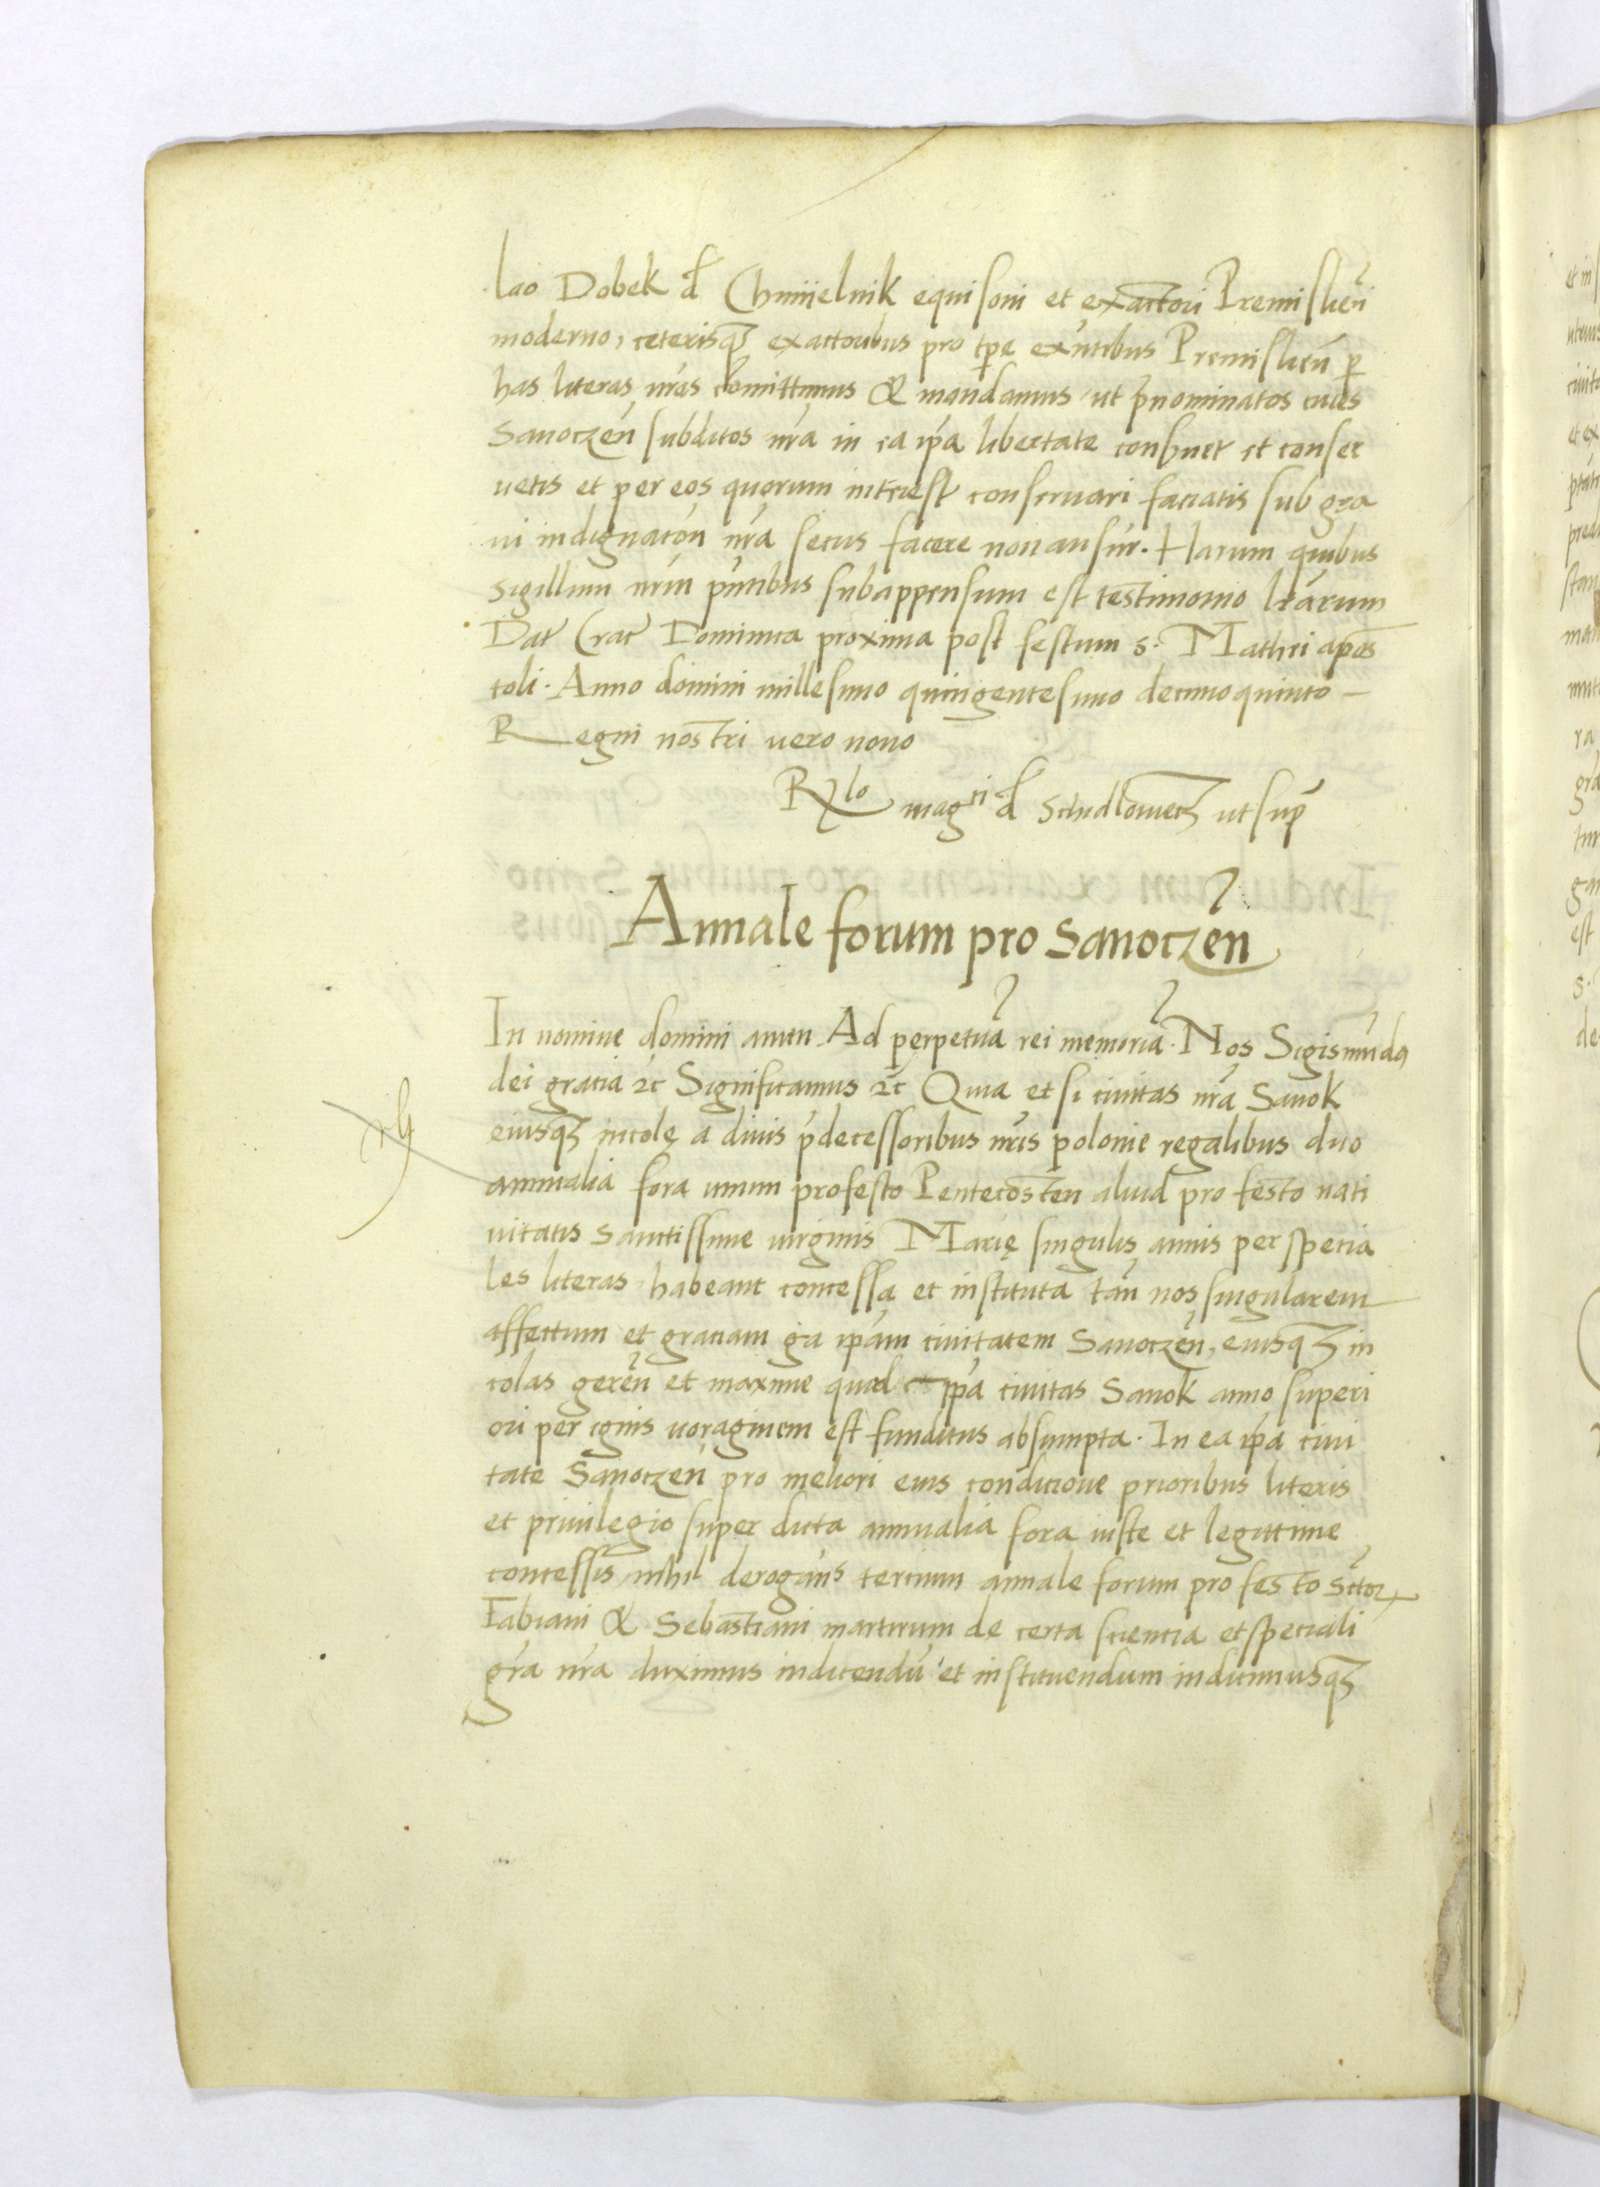 lao Dobek d Chmijelnik equisoni et exactori Premislień
moderno, ceterisq exactoribus pro tpe exñtibus Premislień p
has literas nras comittimus & mandamus ut pnominatos cives
Sanoczeń subditos nra in ea ipa libertate conservet et conser
vetis et per eos quorum interest conservari faciatis sub gra
vi indignacoñ nra secus facere non ausur. Harum quibus
sigillum nrm pntibus subappensum est testimonio lrarum
Dat Crac Dominica proxima post festum s. Mathei apos
toli. Anno domini millesimo quingentesimo decimoquinto –
Regni nostri vero nono
Rlo magci d Schidlowecz ut sup
Annale forum pro Sanoczeń
In nomine domini amen Ad perpetua rei memoria. Nos Sigismudq
dei gracia 2c Significamus 2c Quia et si civitas nra Sanok
eiusq incolę a divis pdecessoribus nris polonie regalibus duo
annualia fora unum pro festo Pentecosten aliud pro festo nati
vitatis sanctissime virginis Marię singulis annis per specia
les literas habeant concessa et instituta tań nos singularem
affectum et graciam ga ipam civitatem Sanoczeń, eiusq in
colas gereń et maxime quod ipa civitas Sanok anno superi
ori per ignis voraginem est funditus absumpta. In ea ipa civi
tate Sanoczeń pro meliori eius condicione prioribus literis
et privilegio super dicta annualia fora iuste et legittime
concessis nihil derogans tercium annale forum pro festo Sctor
Fabiani & Sebastiani martirum de certa sciencia et speciali
gra nra duximus indicendu et instituendum indicimusq